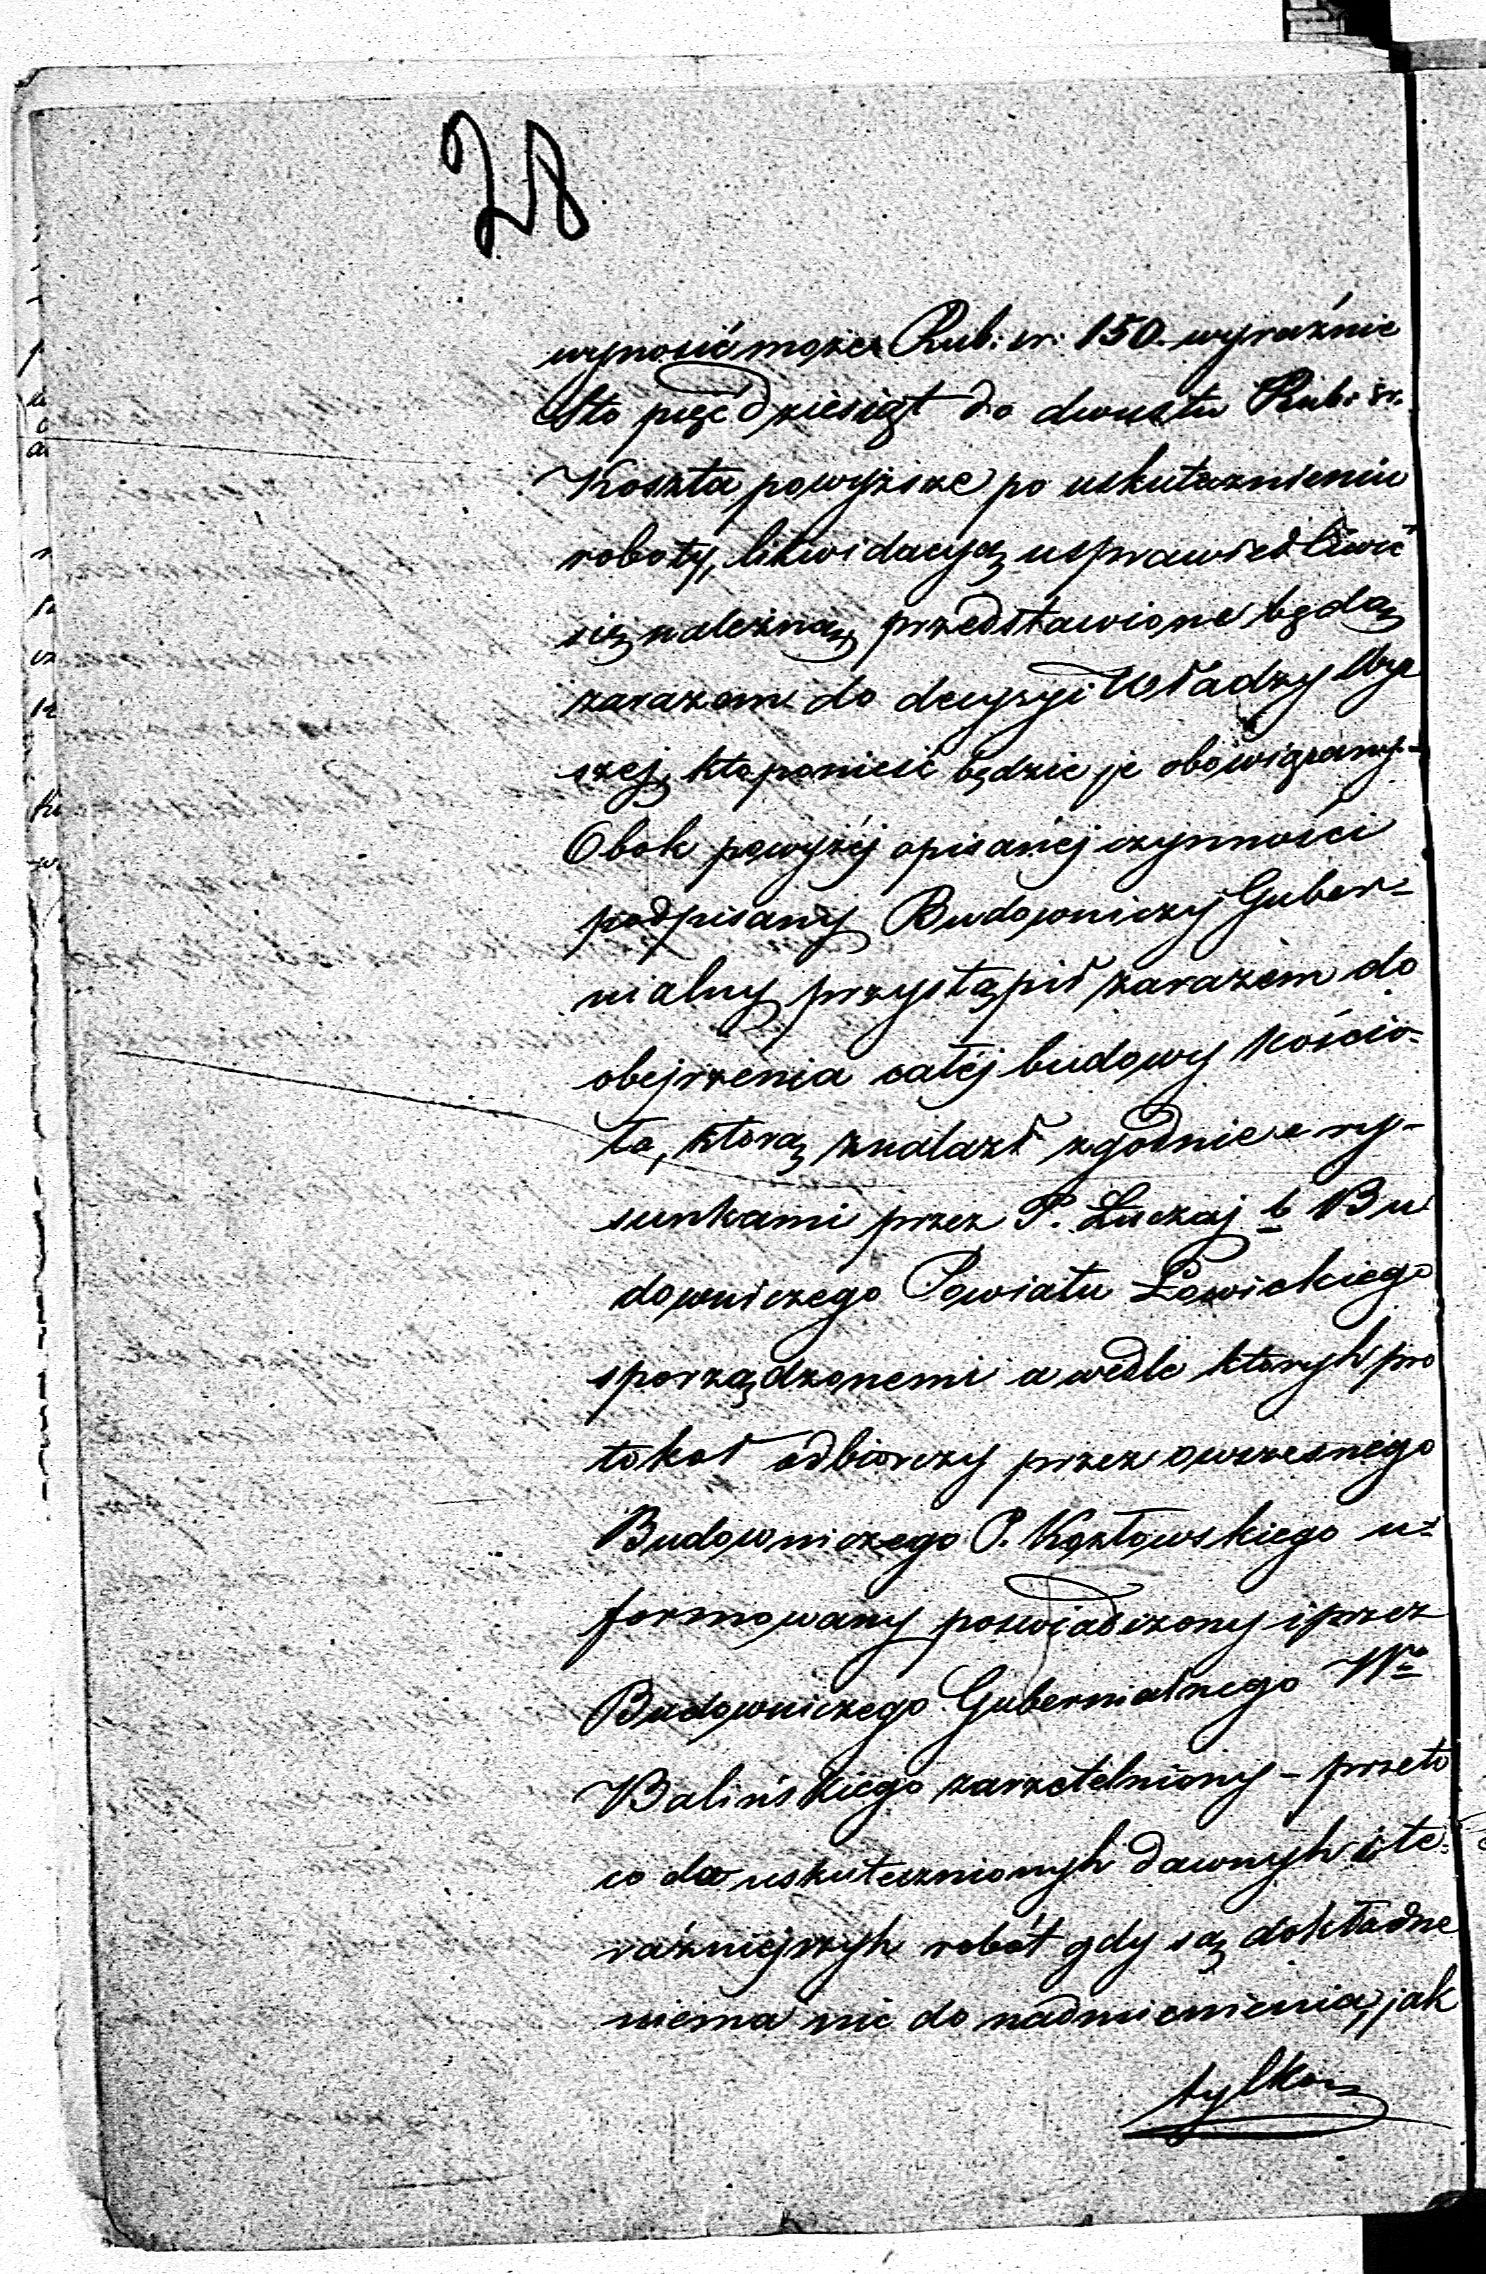 28
wynosić może Rub: sr: 150. wyraźnie
Sto pięćdziesiąt do dwustu Rub: sr.
Koszta powyższe po uskutecznieniu
roboty, likwidacyą usprawiedliwić
się należną, przedstawione będą
zarazem do decyzyi Władzy Wyż
szej, kto ponieść będzie je obowiązany.-
Obok powyżéj opisanéj czynności
podpisany Budowniczy Guber=
nialny przystąpił zarazem do
obejrzenia całéj budowy Kościo-
ła, którą znalazł zgodnie z ry-
sunkami przez P. Łuczaj b Bu
downiczego Powiatu Łowickiego
sporządzonemi a wedle których pro
tokoł odbiorczy przez owczesnego
Budowniczego P. Kozłowskiego u=
formowany poswiadczony i przez
Budowniczego Gubernialnego Wo
Balińskiego zarzetelniony - przeto
co do uskutecznionych dawnych i te=
raźniejszych robót gdy są dokładne
niema nic do nadmienienia, jak
tylko